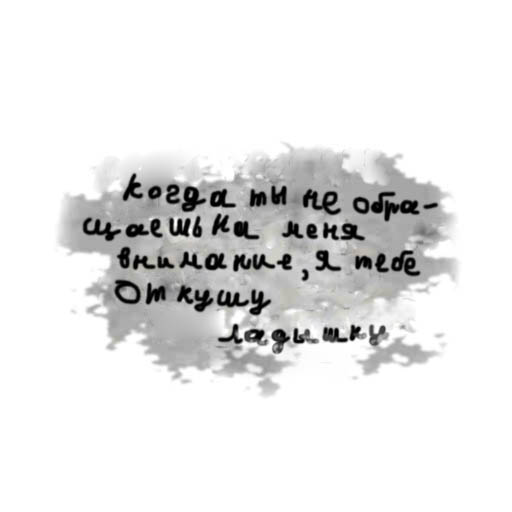 Когда ты не обра-
щаешь на меня
внимание, я тебе
Откушу
ладышку